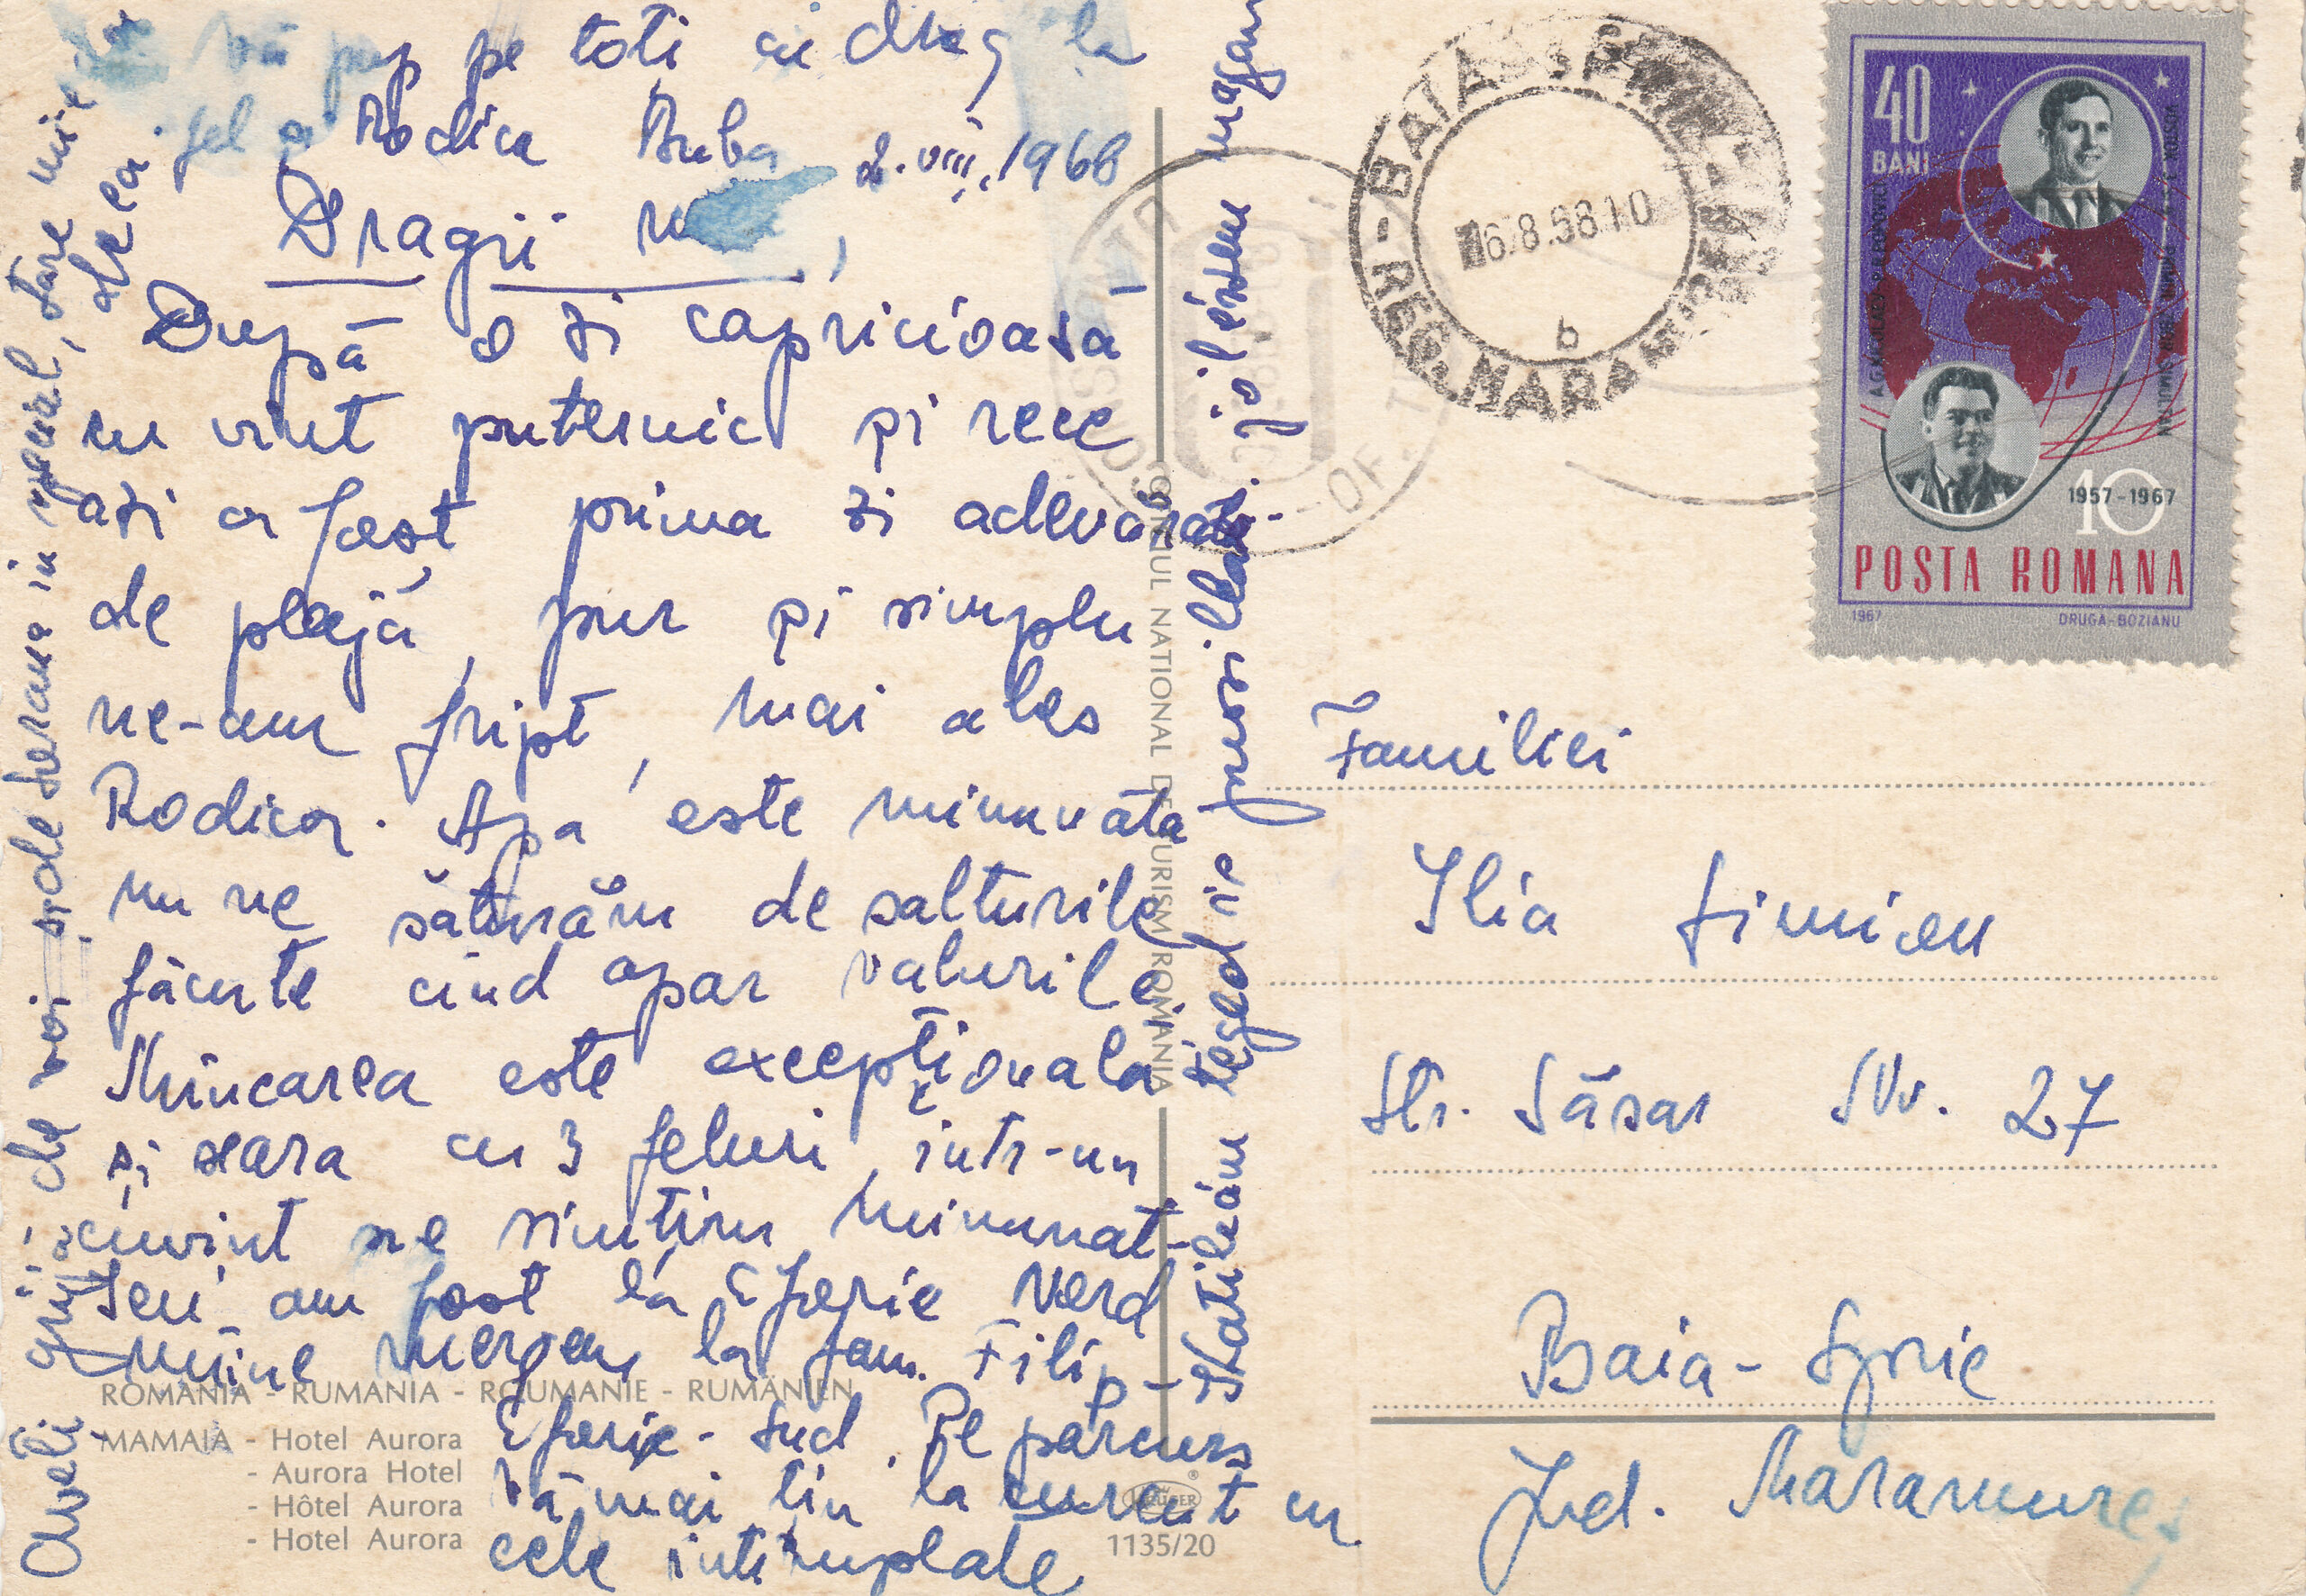 Vă pup pe toți cu drag la
fel și Rodica Buba 2.VIII.1968
Dragii
După o zi capricioasă
cu vînt puternic și rece
azi a fost prima zi adevărată
de plajă, pur și simplu
ne-am fript, mai ales
Rodica. Apa este minunată
nu ne săturăm de salturile
făcute cînd apar valurile.
Mîncarea este excepțională
și seara cu 3 feluri, într-un
cuvînt ne simțim minunat.
Ieri am fost la Eforie Nord
mîine mergem la fam. Filip -
Eforie-Sud. Pe parcurs
vă mai țin la curent cu
cele întîmplate
Aveți grijă de voi
în special, stare
de ea
jól érzem magam
ROMANIA - RUMANIA - ROUMANIE - RUMÄNIEN
MAMAIA - Hotel Aurora
- Aurora Hotel
- Hôtel Aurora
- Hotel Aurora
1135/20
OFICIUL NATIONAL DE TURISM ROMANIA
BAIA SPRIE
REG. MARAMUREȘ
6.8.68 10
b
40
BANI
1957-1967
10
POSTA ROMANA
1967
DRUGA-BOZIANU
Familiei
Ilia Simion
Str. Săsar Nr. 27
Baia-Sprie
Jud. Maramureș